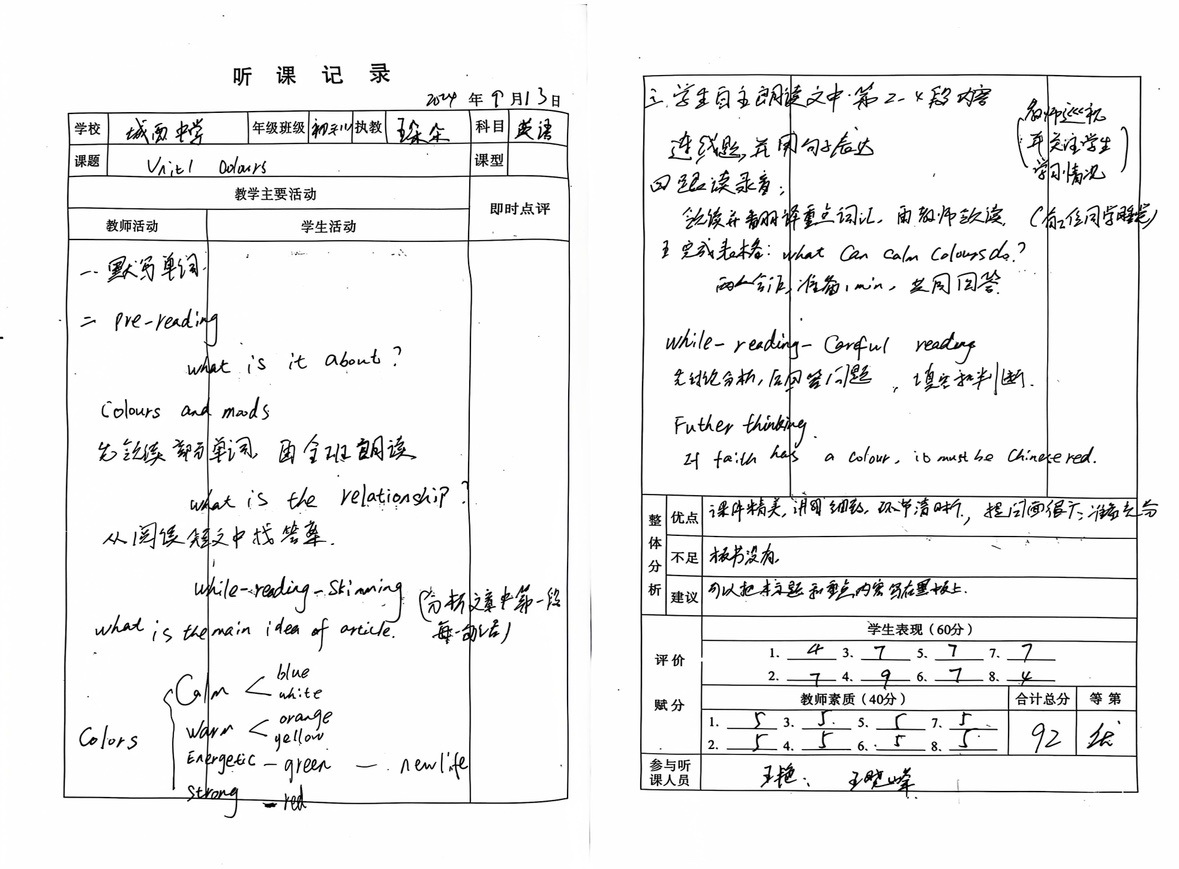 听课记录
2024 年 9 月 13 日
学校 城西中学 年级班级 执教 科目 英语
课题 Unit1 Colours 课型
教学主要活动
即时点评
教师活动 学生活动
一. 默写单词.
二 Pre-reading
what is it about?
Colours and moods
先领读部分单词, 再全班朗读
what is the relationship?
从阅读短文中找答案.
while-reading-Skimming
(分析文章中第一段
what is the main idea of article.
每一句话)
Colors
Calm < blue
white
warm < orange
yellow
Energetic - green — new life
Strong - red
三. 学生自主朗读文中第2-4段内容
(教师巡视
并关注学生
学习情况)
连线题, 并用句子表达
四 跟读录音;
领读并翻译重点词汇, 由教师领读. (有2位同学睡觉)
五 完成表格: what can calm colours do?
两人合作, 准备1min, 共同回答.
while-reading-Careful reading
先讨论分析, 后回答问题, 填空和判断.
Futher thinking.
If faith has a colour, it must be Chinese red.
整体分析
优点 课件精美, 讲解细致, 环节清晰, 提问面很广, 准备充分
不足 板书没有.
建议 可以把本主题和重点内容写在黑板上.
评价赋分
学生表现(60分)
1. 4 3. 7 5. 7 7. 7
2. 7 4. 9 6. 7 8. 4
教师素质(40分) 合计总分 等第
1. 5 3. 5 5. 5 7. 5
2. 5 4. 5 6. 5 8. 5
92 优
参与听课人员 王艳, 王晓峰